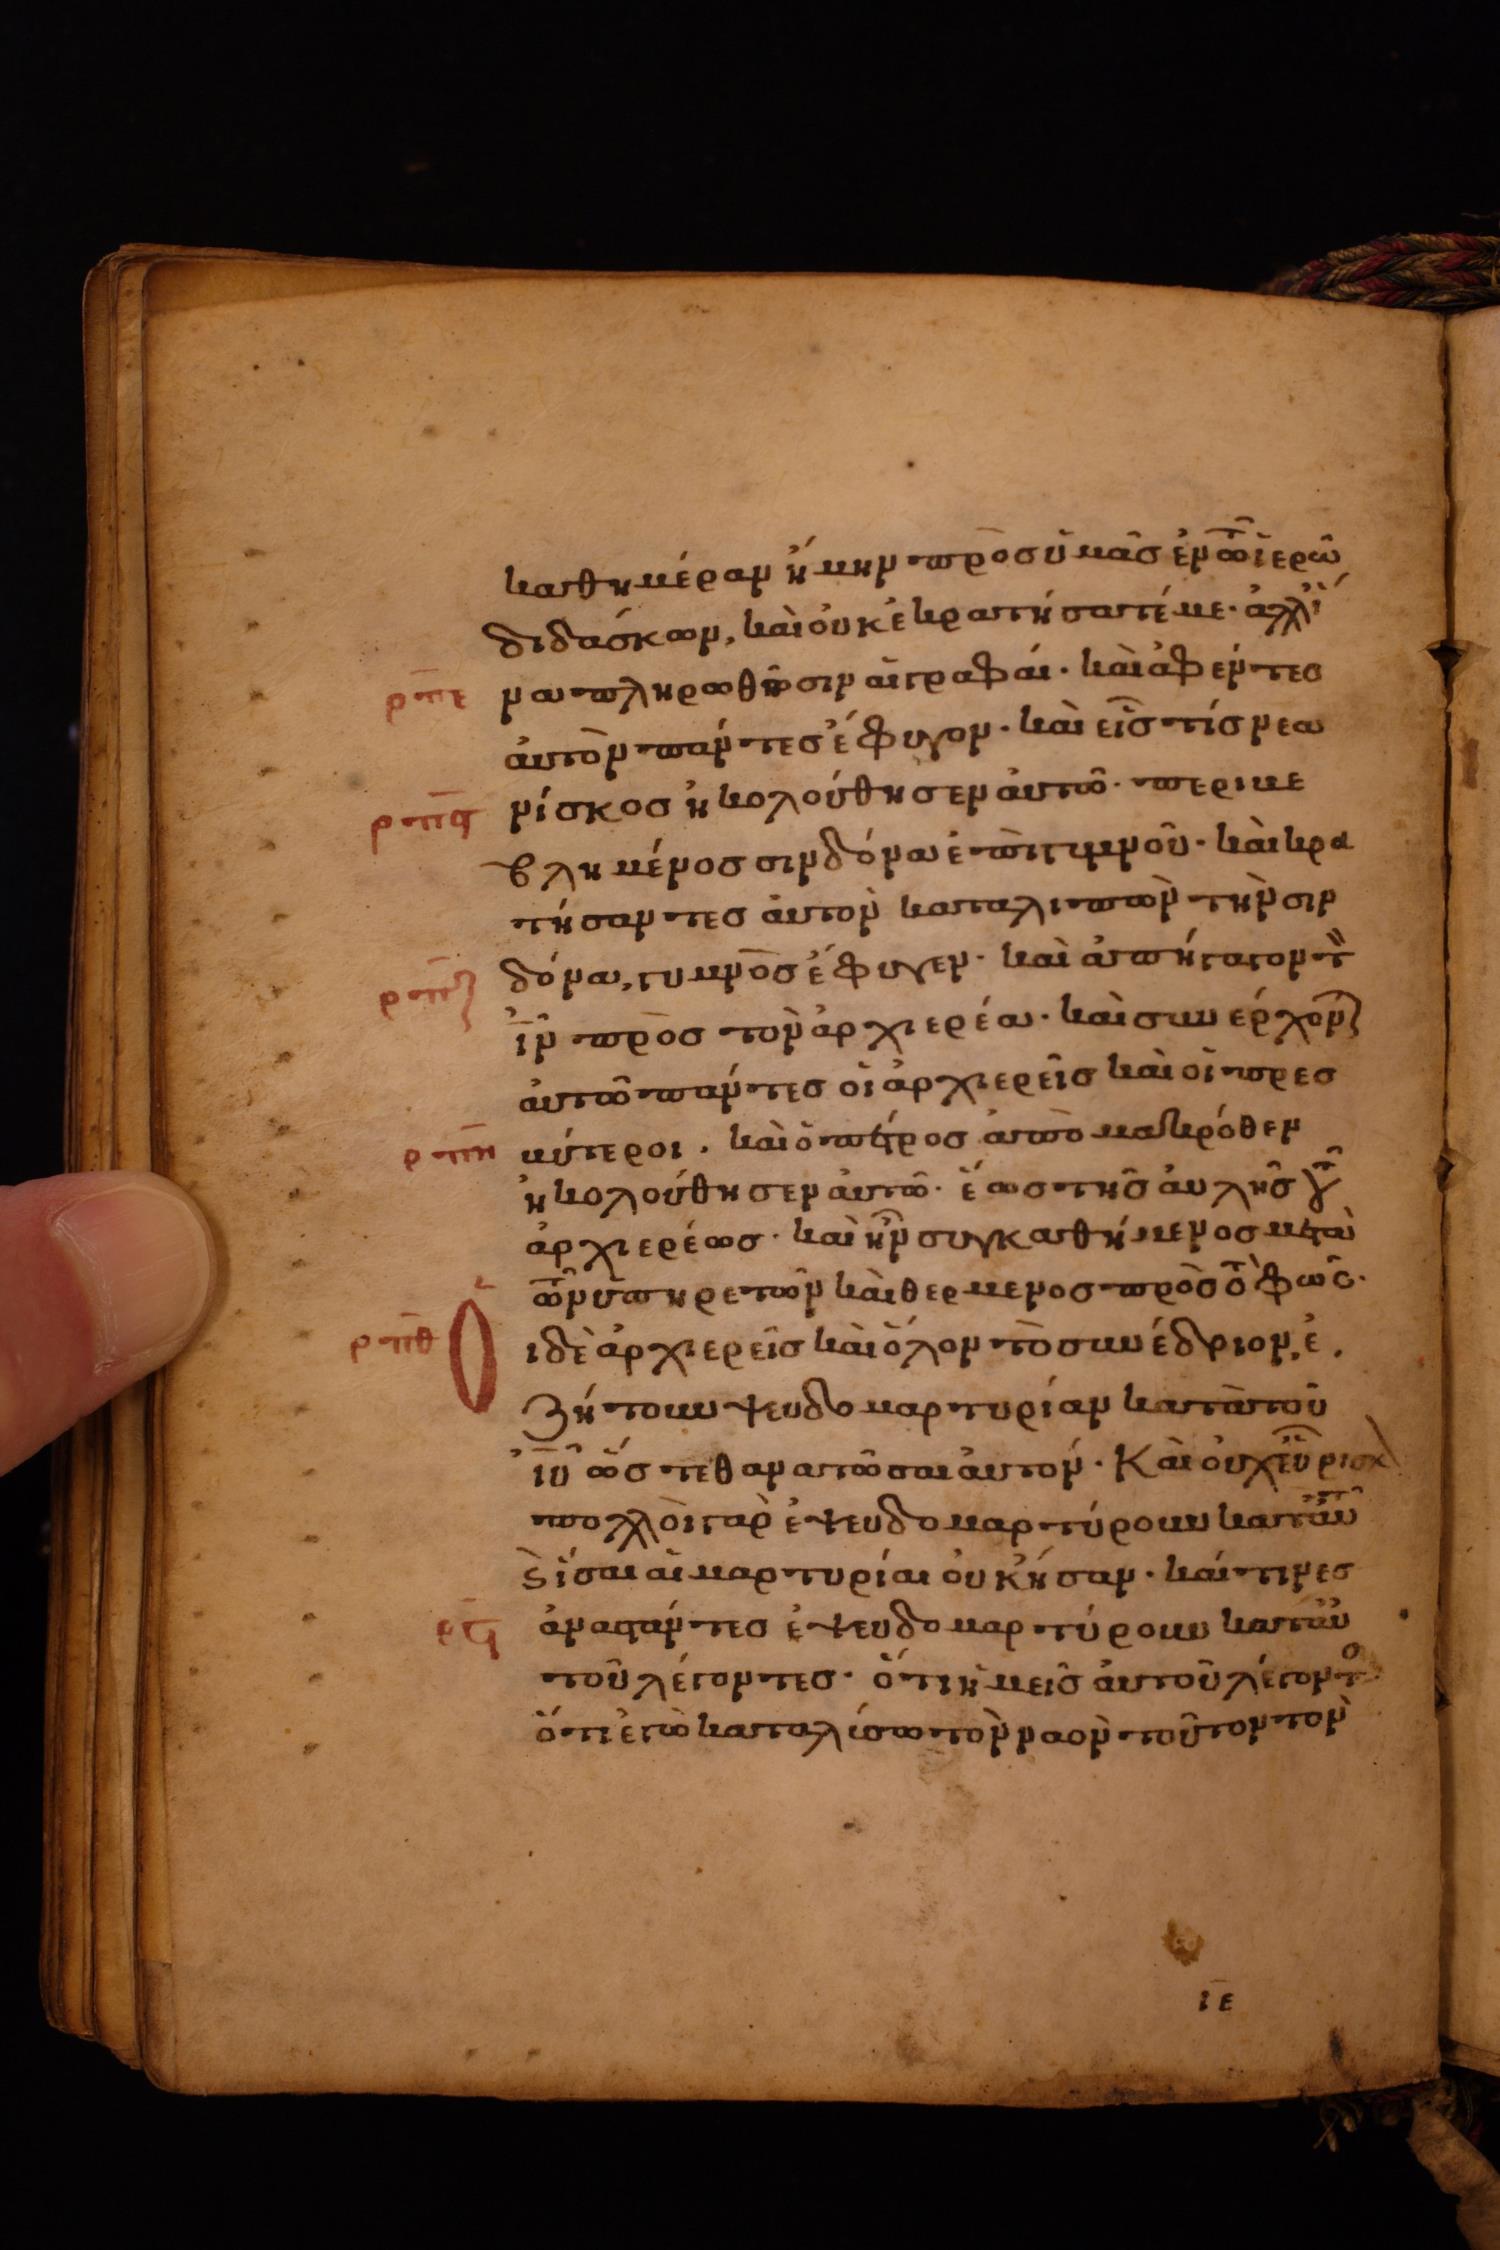 καθημέραν ἤμην πρὸς ὑμᾶς ἐν τῶ ἱερῶ
διδάσκων, καὶ οὐκ ἐκρατήσατέ με· ἀλλ' ἵ
ρπε να πληρωθῶσιν αἱ γραφαί· καὶ ἀφέντες
ἀυτὸν πάντες ἔφυγον· καὶ εἷς τίς νεα
ρπϛ νίσκος ἠκολούθησεν ἀυτῶ· περιβε
βλημένος σινδόνα ἐπὶ γυμνοῦ· καὶ κρα
τήσαντες ἀυτὸν καταλιπὼν τὴν σιν
ρπζ δόνα, γυμνὸς ἔφυγεν· καὶ ἀπήγαγον τὸν
ἰν πρὸς τὸν ἀρχιερέα· καὶ συνέρχονται
ἀυτῶ πάντες οἱ ἀρχιερεῖς καὶ οἱ πρεσ
ρπη βύτεροι. καὶ ὁ πέτρος ἀπὸ μακρόθεν
ἠκολούθησεν ἀυτῶ· ἕως τῆς ἀυλῆς τοῦ
ἀρχιερέως· καὶ ἦν συγκαθήμενος μετὰ
τῶν ὑπηρετῶν καὶ θερμενος πρὸς τὸ φῶς·
ρπθ Ο ιδὲ ἀρχιερεῖς καὶ ὅλον τὸ συνέδριον, ἐ
ζήτουν ψευδομαρτυρίαν κατὰ τοῦ
ἰυ ὥστε θανατῶσαι ἀυτόν· Καὶ οὐχ εὕρισκον
πολλοὶ γὰρ ἐψευδομαρτύρουν κατ' ἀυτοῦ
ϛ ἴσαι αἱ μαρτυρίαι οὐκ ἦσαν· καί τινες
ρϟ ἀναστάντες ἐψευδομαρτύρουν κατ' ἀυ
τοῦ λέγοντες· ὅτι ἡμεῖς ἀυτοῦ λέγοντος
ὅτι ἐγὼ καταλύσω τὸν ναὸν τοῦτον τὸν
ιε